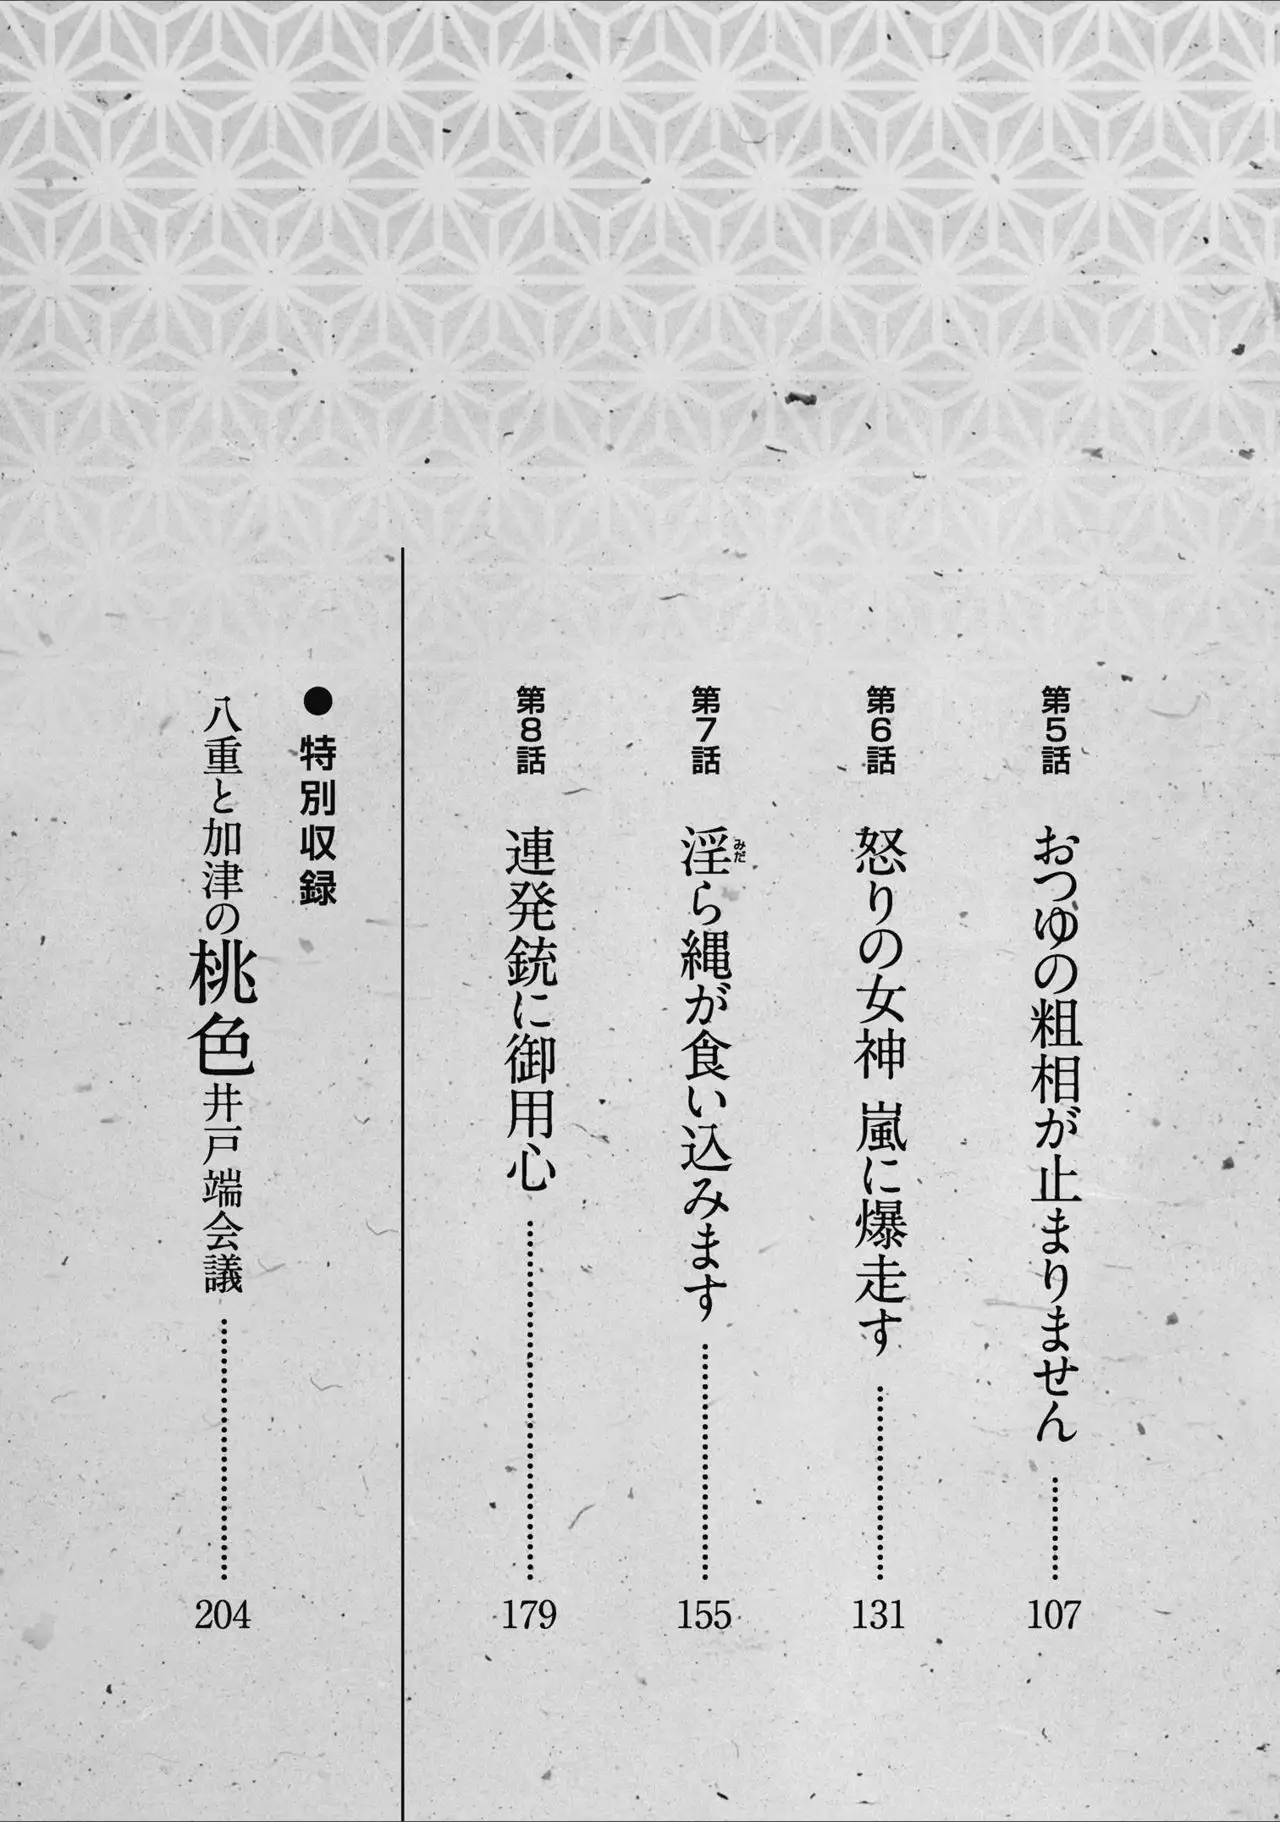 第5話 おつゆの粗相が止まりません 107
第6話 怒りの女神 嵐に爆走す 131
第7話 淫ら縄が食い込みます 155
みだ
第8話 連発銃に御用心 179
●特別収録
八重と加津の桃色井戸端会議 204